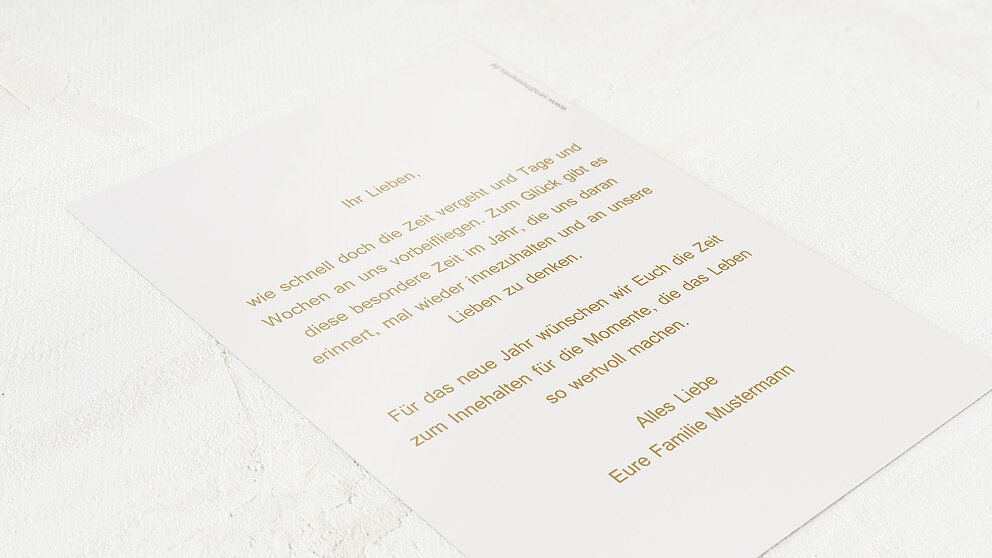 Ihr Lieben,
wie schnell doch die Zeit vergeht und Tage und
Wochen an uns vorbeifliegen. Zum Glück gibt es
diese besondere Zeit im Jahr, die uns daran
erinnert, mal wieder innezuhalten und an unsere
Lieben zu denken.
Für das neue Jahr wünschen wir Euch die Zeit
zum Innehalten für die Momente, die das Leben
so wertvoll machen.
Alles Liebe
Eure Familie Mustermann